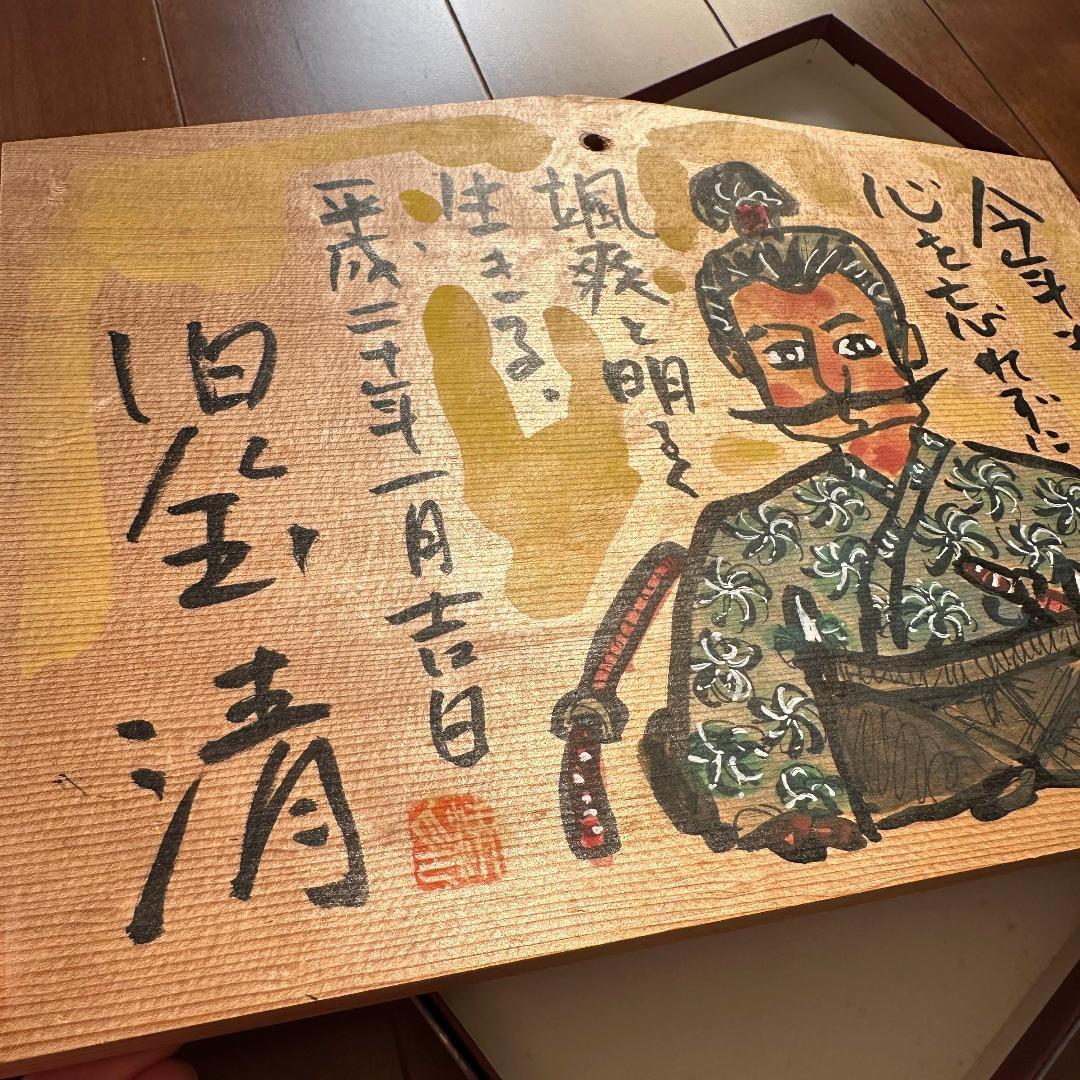 今年
心を忘れずに
颯爽と明るく
生きる。
平成二十年一月吉日
清